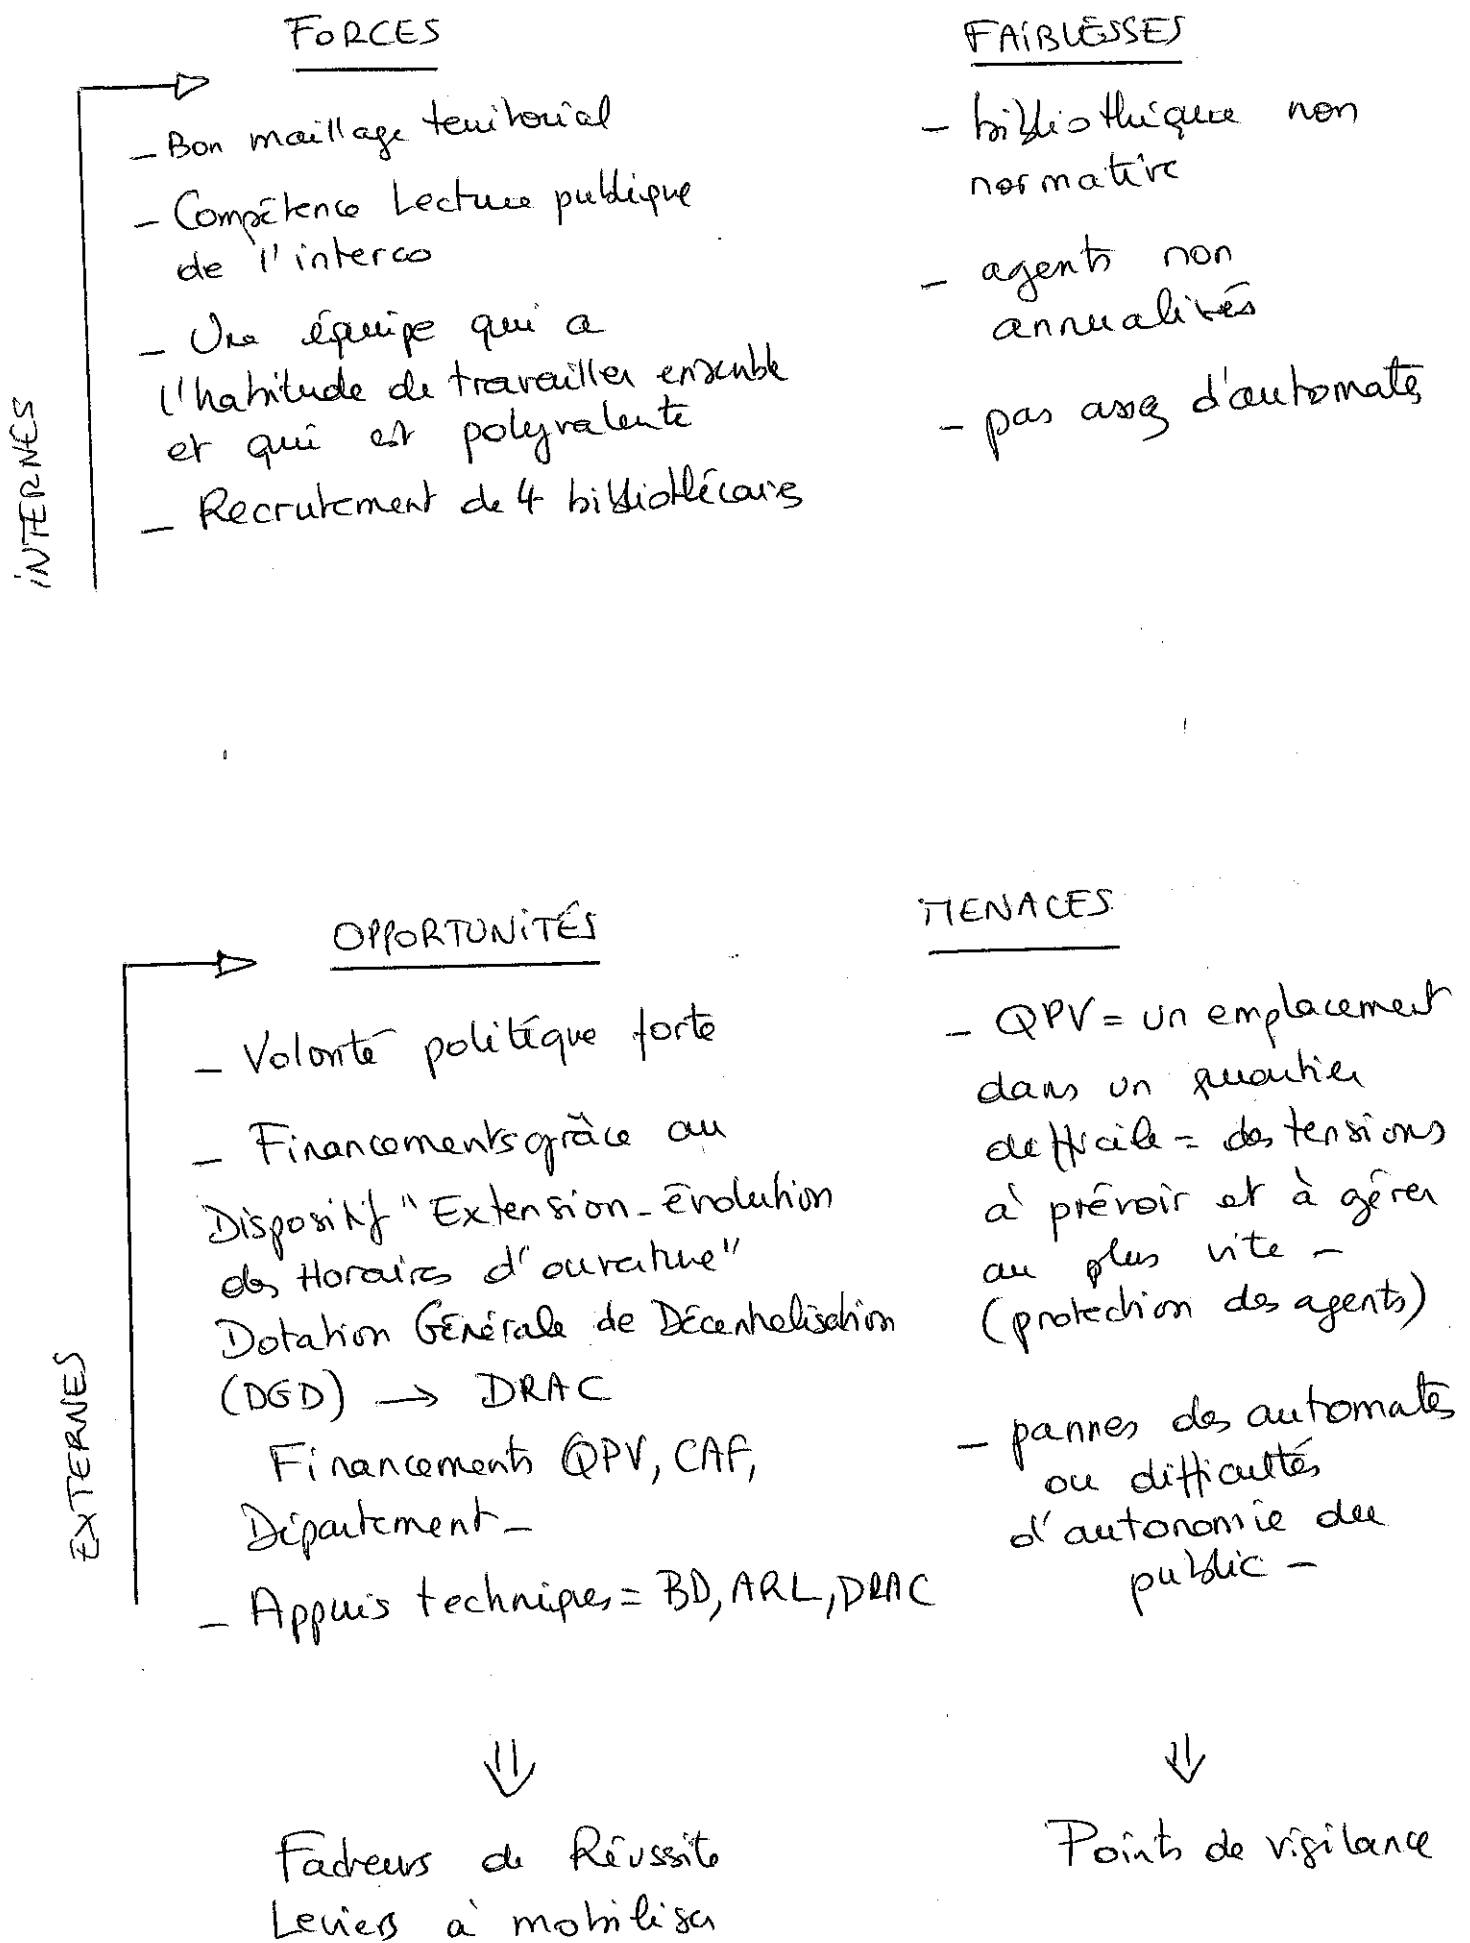 FORCES
- Bon maillage territorial
- Compétence Lecture publique
de l'interco
- Une équipe qui a
l'habitude de travailler ensemble
et qui est polyvalente
- Recrutement de 4 bibliothécaires
INTERNES
FAIBLESSES
- bibliothèque non
normative
- agents non
annualisés
- pas assez d'automates
OPPORTUNITÉS
- Volonté politique forte
- Financements grâce au
Dispositif "Extension-évolution
des Horaires d'ouverture"
Dotation Générale de Décentralisation
(DGD) → DRAC
Financements QPV, CAF,
Département -
- Appuis techniques = BD, ARL, DRAC
EXTERNES
MENACES
- QPV = un emplacement
dans un quartier
difficile = des tensions
à prévoir et à gérer
au plus vite -
(protection des agents)
- pannes des automates
ou difficultés
d'autonomie du
public -
⇓
Facteurs de Réussite
Leviers à mobiliser
⇓
Points de vigilance